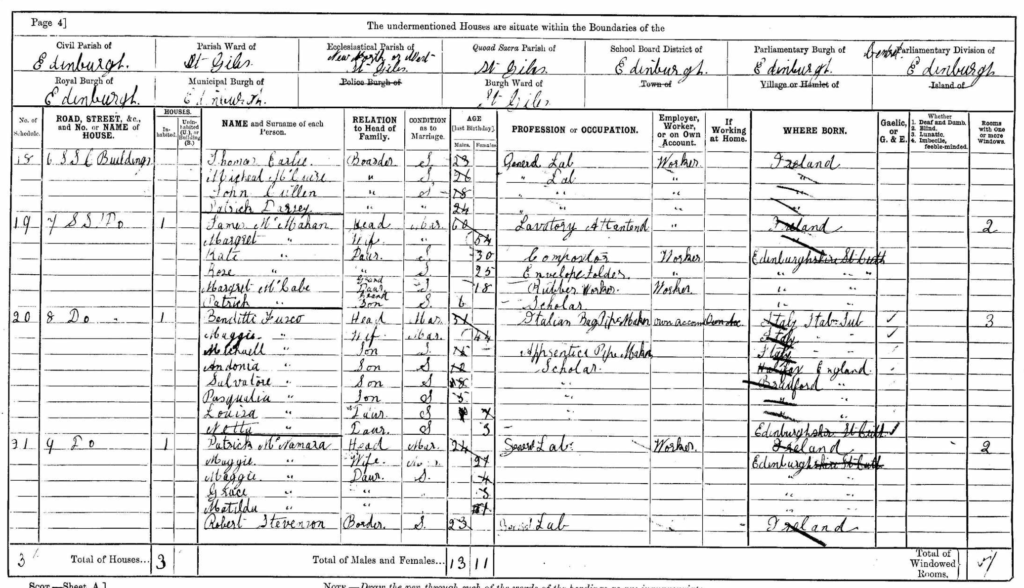 Page 4]
The undermentioned Houses are situate within the Boundaries of the
Civil Parish of Edinburgh.
Parish Ward of St Giles
Ecclesiastical Parish of New North or West St Giles
Quoad Sacra Parish of St Giles
School Board District of Edinburgh
Parliamentary Burgh of Edinburgh
Parliamentary Division of Central Edinburgh
Royal Burgh of Edinburgh.
Municipal Burgh of Edinburgh.
Police Burgh of
Burgh Ward of St Giles
Town of
Village or Hamlet of
Island of
No. of Schedule.
ROAD, STREET, &c., and No. or NAME of HOUSE.
HOUSES.
In-habited.
Unin-habited (U.), or Building (B.)
NAME and Surname of each Person.
RELATION to Head of Family.
CONDITION as to Marriage.
AGE [last Birthday].
Males. Females.
PROFESSION or OCCUPATION.
Employer, Worker, or on Own Account.
If Working at Home.
WHERE BORN.
Gaelic, or G. & E.
Whether 1. Deaf and Dumb. 2. Blind. 3. Lunatic. 4. Imbecile, feeble-minded.
Rooms with One or more Windows.
18 6 S S C Buildings Thomas Boarder S 23 General Lab Worker Ireland
Micheal McGuire " S 26 " Lab " "
John Cullen " S 28 " " "
Patrick " " 24 " " "
19 7 S S Do 1 James McMahan Head Mar 60 Lavatory Attantend Ireland 2
Margret " Wif " 54
Kate " Daur S 30 Compositor Worker Edinburghshire St Cuth
Rose " " S 25 Envelope folder " " "
Margret McCabe Grand Daur S 18 Rubber Worker Worker " "
Patrick " Grand Son S 6 Scholar " "
20 8 Do " 1 Benditto Fusco Head Mar. 51 Italian Bagpipe Maker own account Italy Ital-Sub 3
Maggie " Wif Mar. 44 Italy
Michaell " Son S Apprentice Pipe Maker Italy
Andonia " Son S Scholar Halifax England
Salvatore " Son S Bradford "
Pasqualia " Son S 5 " "
Louisa " Daur S 7 " "
Netty " Daur. S 3 Edinburghshire St Cuth
31 9 Do 1 Patrick McNamara Head Mar. 24 Lab Worker Ireland 2
Maggie " Wife 27 Edinburghshire St Cuth
Maggie " Daur S. 4 " "
Grace " " 3 " "
Matilda " " " "
Robert Stevenson Border S. 23 Lab Ireland
3 Total of Houses... 3 Total of Males and Females... 13 11 Total of Windowed Rooms,
SCOT.—Sheet A.]